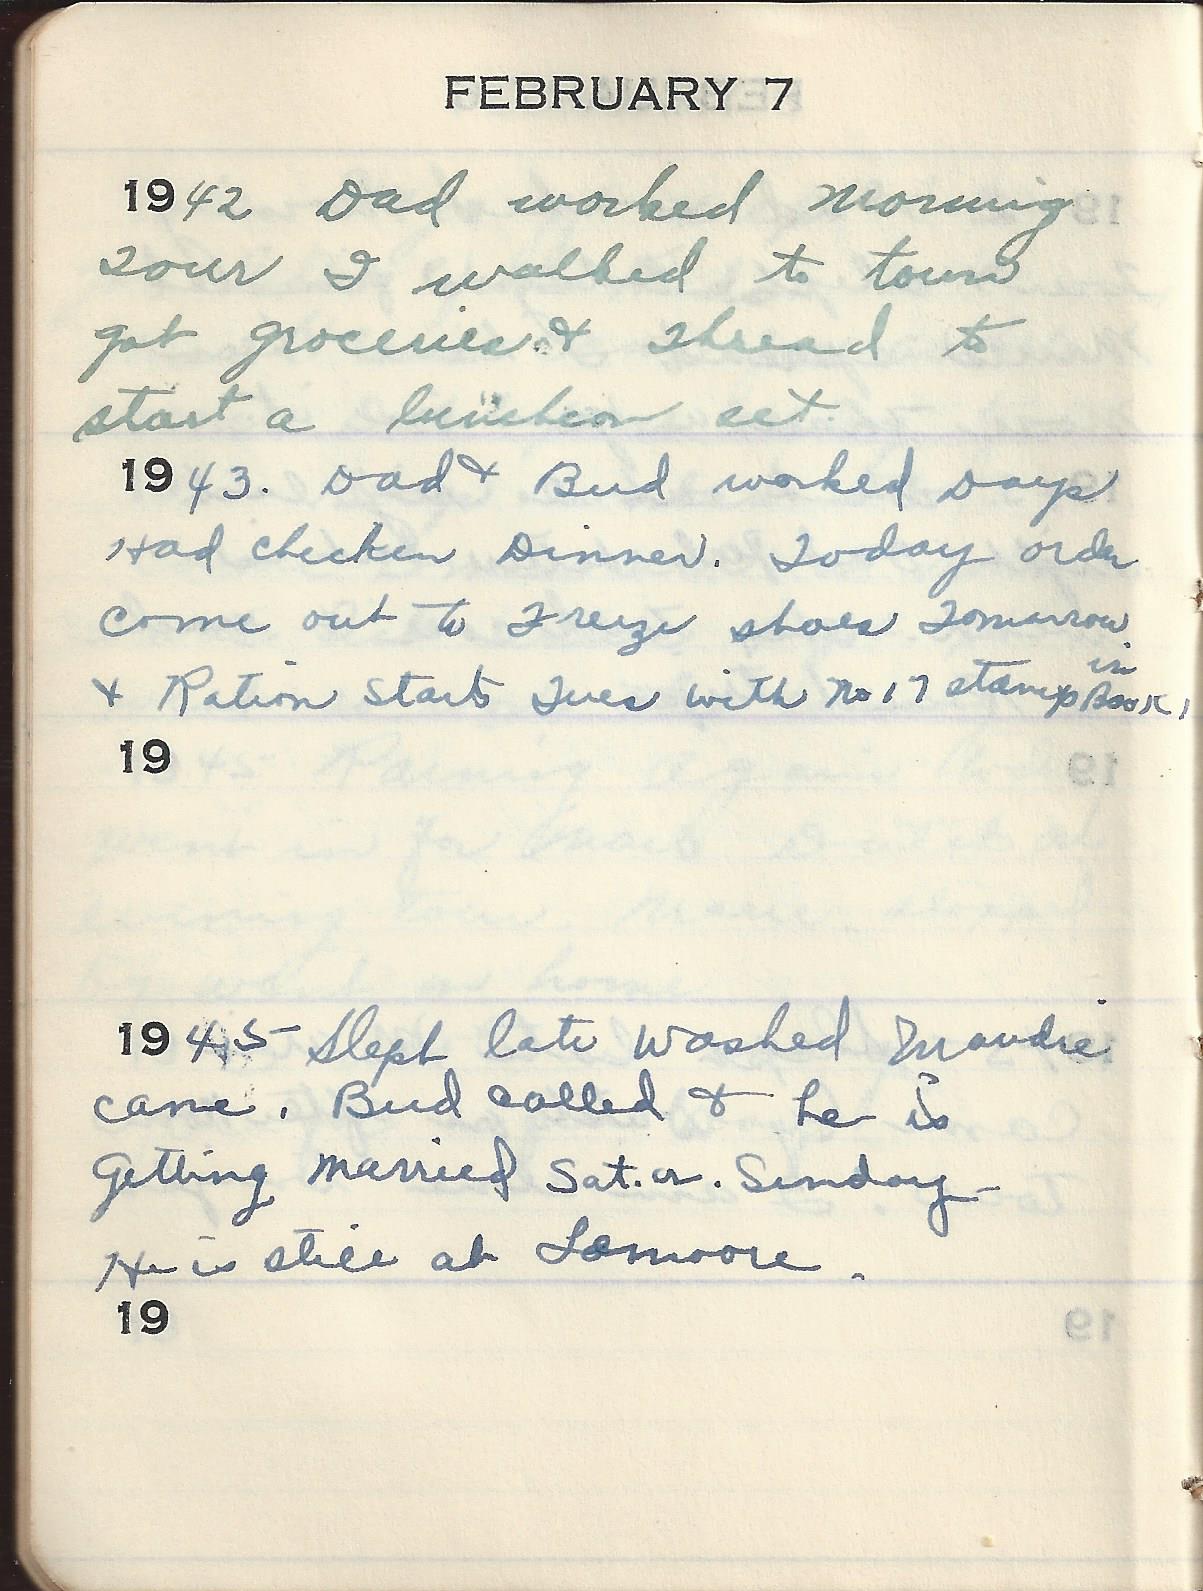 FEBRUARY 7
1942 Dad worked Morning
Tour I walked to town
got groceries & Thread to
start a luncheon set
1943. Dad & Bud worked Days
Had chicken Dinner. Today order
come out to Freeze shoes Tomorrow
& Ration Starts Tues with No 17 stamp in Book 1
19
1945 Slept late Washed Maudie
came. Bud called & he is
Getting Married Sat. or. Sunday—
He is still at Lemoore.
19